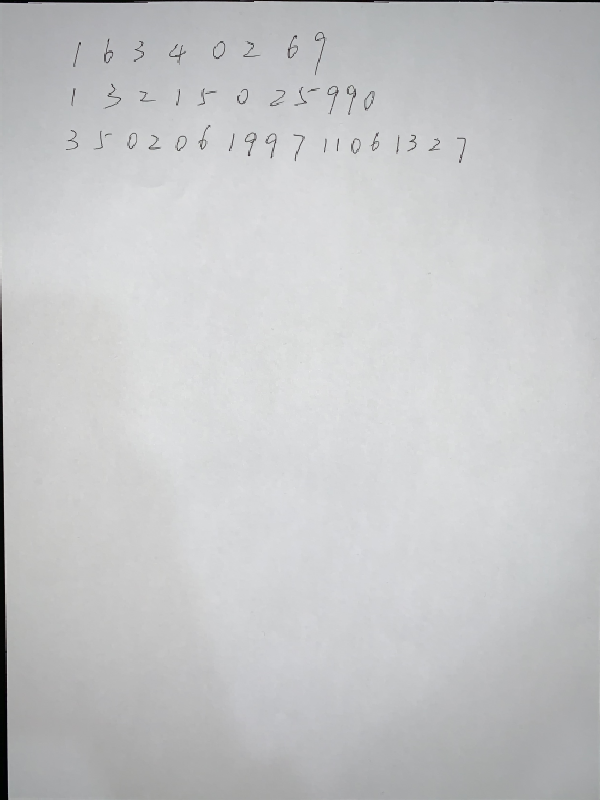 1 6 3 4 0 2 6 9
1 3 2 1 5 0 2 5 9 9 0
3 5 0 2 0 6 1 9 9 7 1 1 0 6 1 3 2 7